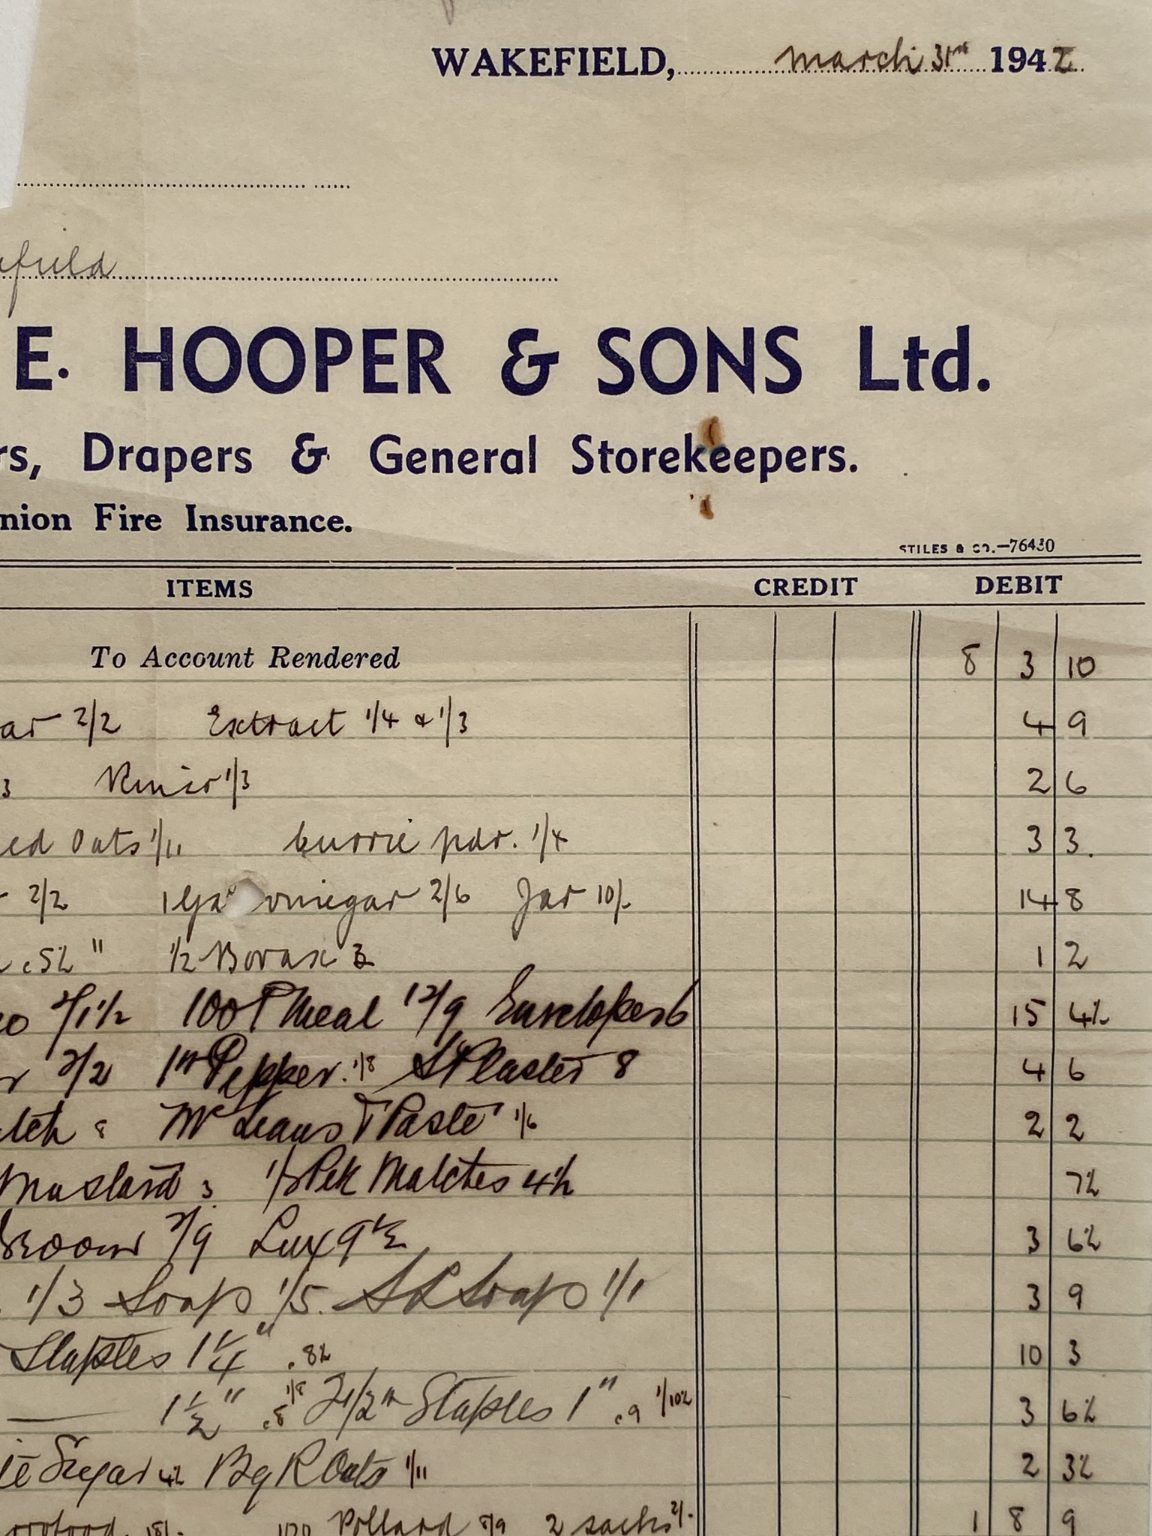 WAKEFIELD, march 31st 1942
E. HOOPER & SONS Ltd.
rs, Drapers & General Storekeepers.
nion Fire Insurance.
STILES & CO.—76430
ITEMS CREDIT DEBIT
To Account Rendered 8 3 10
ar 2/2 Extract 1/4 & 1/3 4 9
3 1/3 2 6
ed Oats 1/11 Currie pdr. 1/4 3 3.
2/2 1 vinegar 2/6 Jar 10/- 14 8
5½ " ½ Borax 3 1 2
2/1½ 100 P Meal 12/9 Envelopes 6 15 4½
2/2 1 Pepper 1/8 S Plaster 8 4 6
8 McLeans T Paste 1/6 2 2
Mustard 3 ½ Pck Matches 4½ 7½
Broom 2/9 Lux 9½ 3 6½
1/3 Soap 1/5. S L Soap 1/1 3 9
Staples 1¼" .8½ 10 3
1½" .8 1/8 Staples 1" .9 1/10½ 3 6½
Sugar 4½ Bg R Oats 1/11 2 3½
Pollard 8/9 2 sacks 2/- 1 8 9